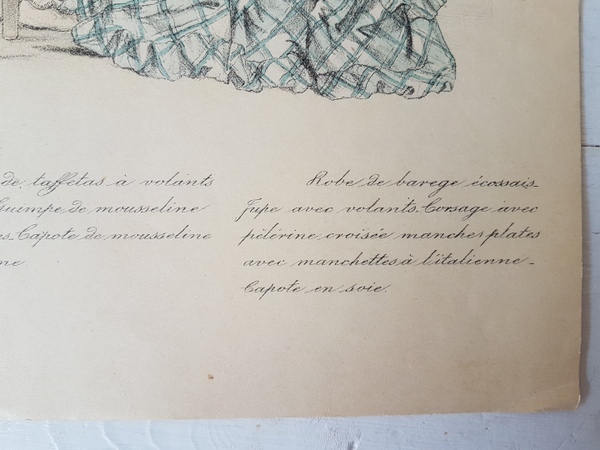 de taffetas à volants
Guimpe de mousseline
Capote de mousseline
Robe de barege écossais_
Jupe avec volants_Corsage avec
pèlérine croisée manches plates
avec manchettes à l'italienne_
Capote en soie.